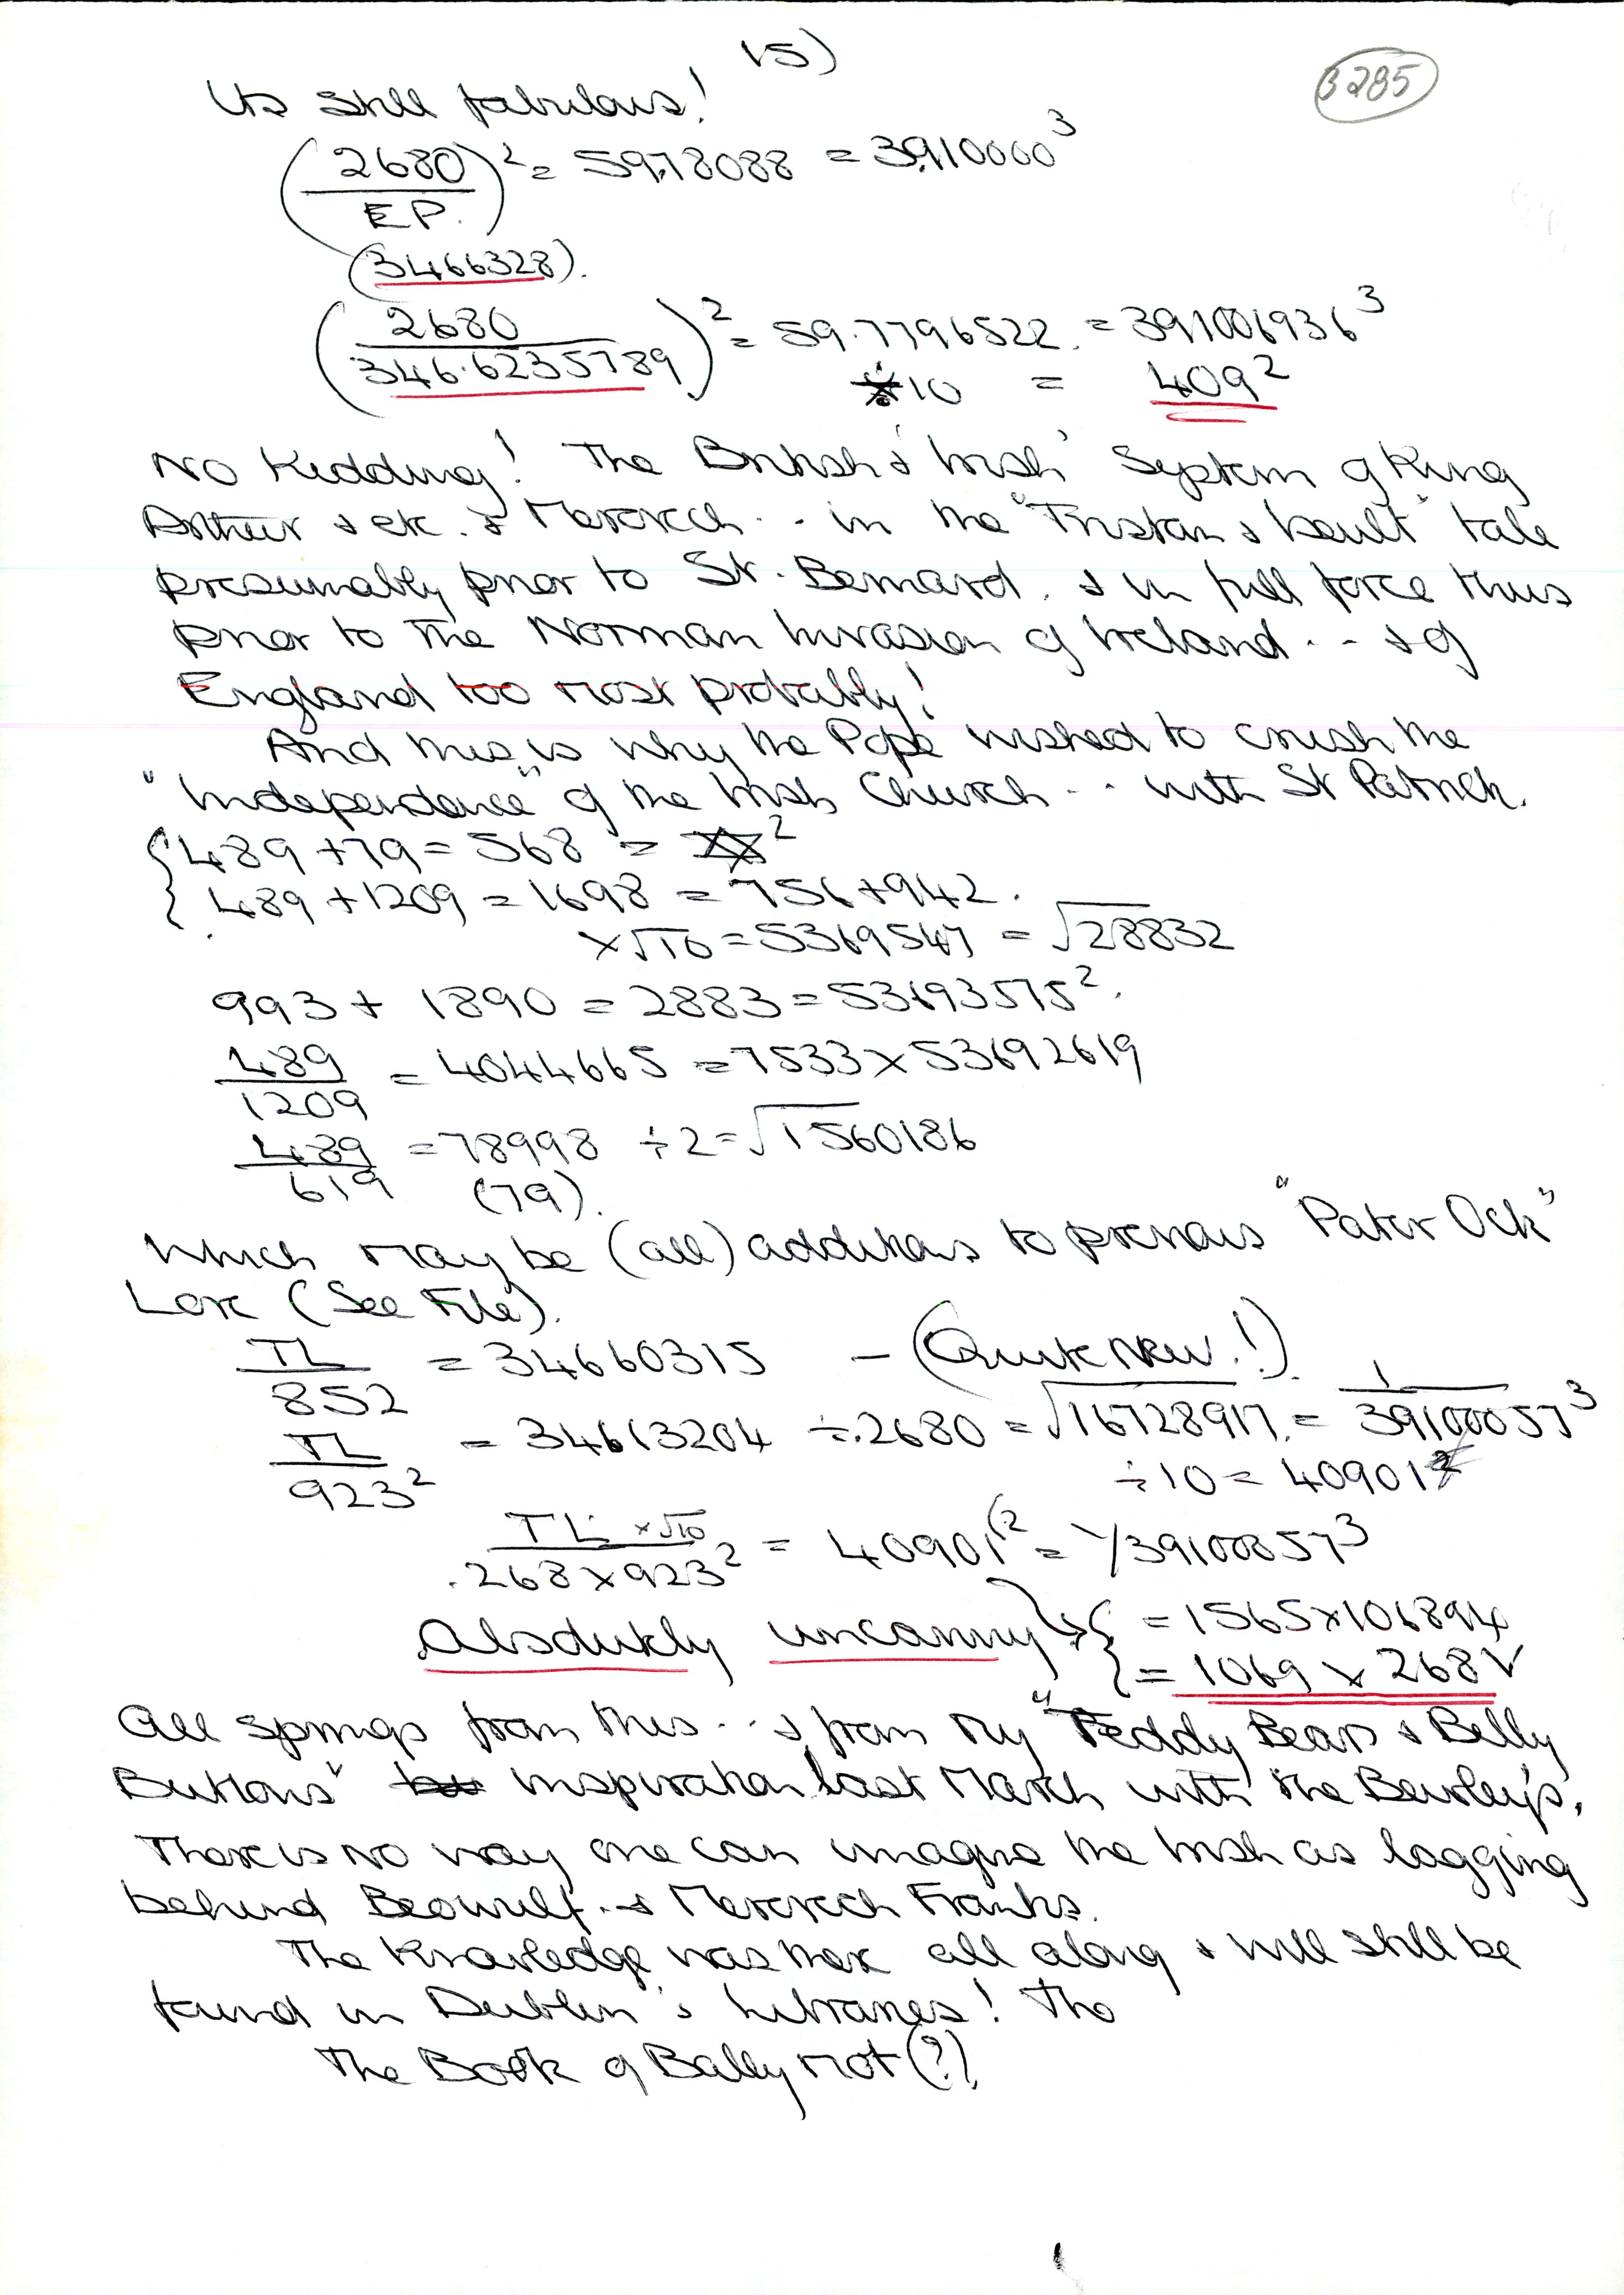 15)
3285
Its Still fabulous!
(2680/EP.)² = 59.78088 = 3.910000³
(3466328).
(2680/346.6235789)² = 59.7796522. = 391006936³
÷10 = 409²
No Kidding! The British & 'Irish' System of King
Arthur & etc. & Merovech .. in the "Tristan & Iseult" tale
presumably prior to St. Bernard. & in full force thus
prior to the Norman Invasion of Ireland .. & of
England too most probably!
And this is why the Pope wished to crush the
"Independence" of the Irish Church .. with St Patrick.
489 + 79 = 568 = ²
489 + 1209 = 1698 = 756 + 942.
×√10 = 5369547 = √28832
993 + 1890 = 2883 = 53693575².
489/1209 = 4044665 = 7533 × 53692619
489/619 = 78998 ÷ 2 = √1560186
(79).
Which may be (all) additions to previous "Pater Ock"
Lore (See File).
TL/852 = 34660315 – (Quite New!).
TL/923² = 34613204 ÷ .2680 = √16728917. = 1/39100057³
÷10 = 40901²
TL ×√10/.268 × 923² = 40901² = 1/39100057³
Absolutely uncanny { = 1565 × 106894
{ = 1069 × 268√
All springs from this .. & from my "Teddy Bears & Belly
Buttons" inspiration last March with the Bewley's.
There is no way one can imagine the Irish as lagging
behind Beowulf. & Merovech Franks.
The Knowledge was there all along & will still be
found in Dublin's Libraries! Tho
The Book of Ballymot (?).